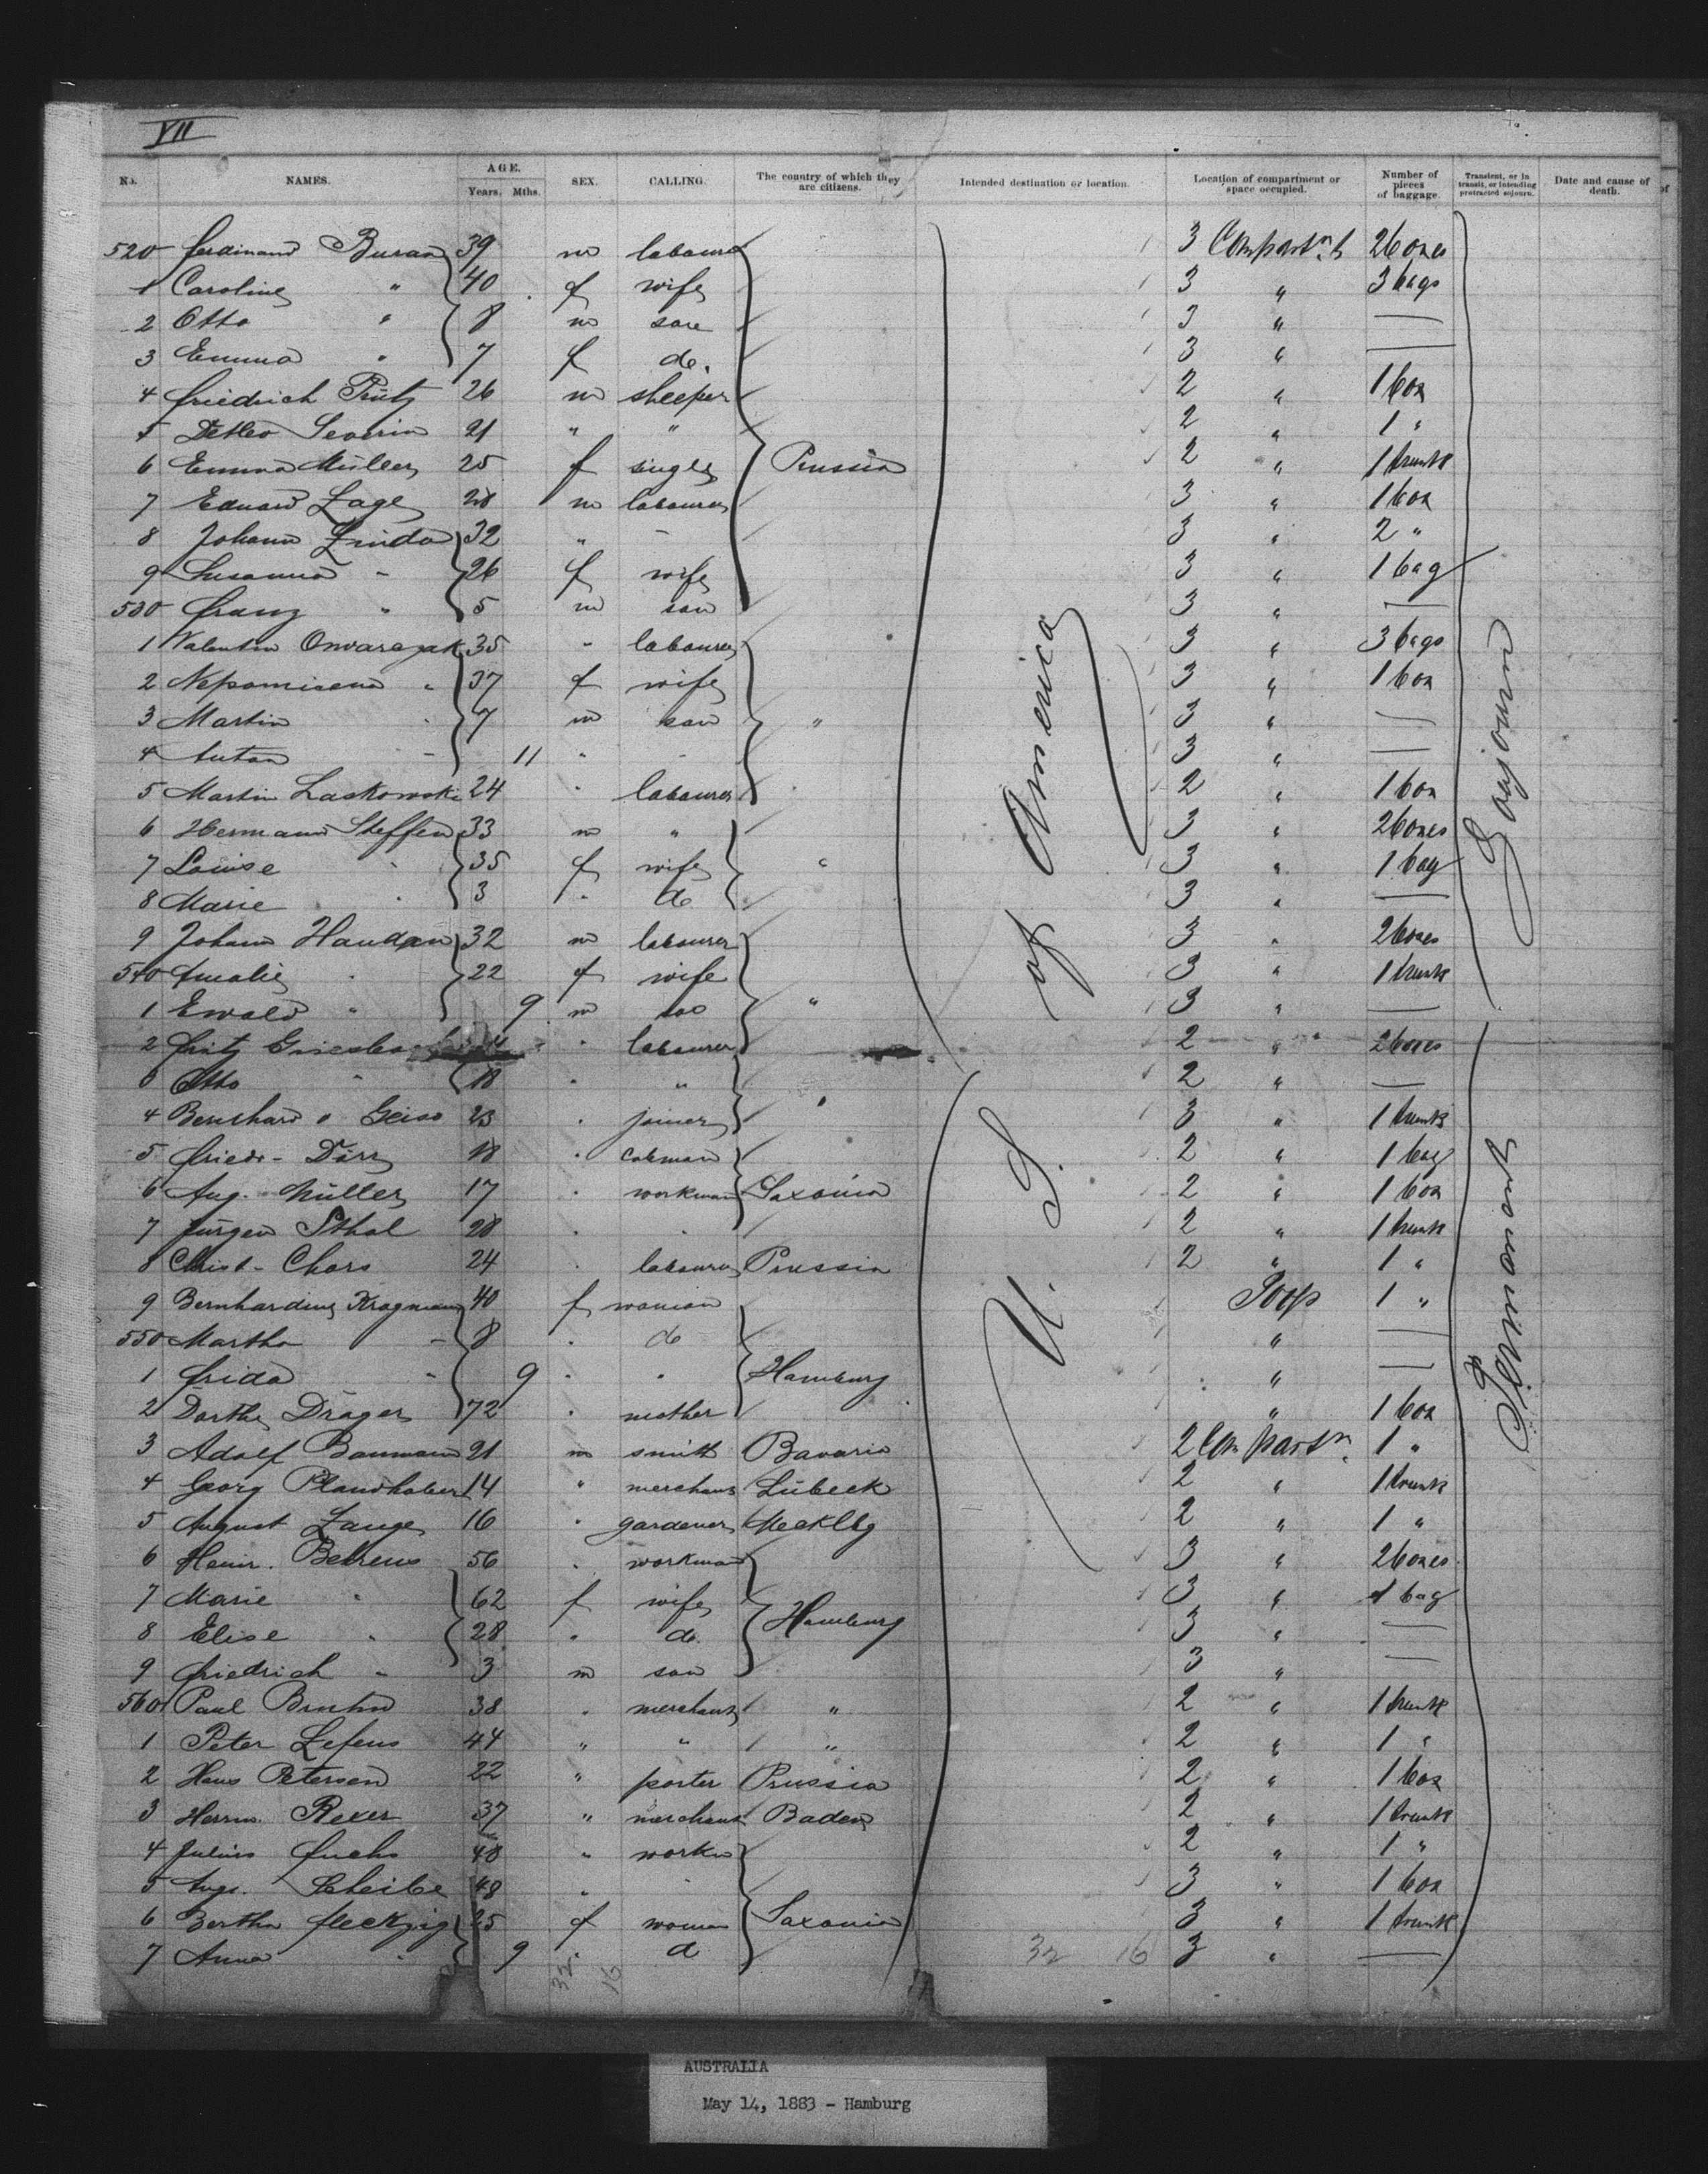 VII
No. NAMES. AGE. Years. Mths. SEX. CALLING. The country of which they are citizens. Intended destination or location. Location of compartment or space occupied. Number of pieces of baggage. Transient, or in transit, or intending protracted sojourn. Date and cause of death.
520 Ferdinand Buran 39 m labourer 3 Compartm.t 2 boxes
1 Caroline " 40 f wife 3 " 3 bags
2 Otto " 8 m son 3 " —
3 Emma " 7 f do. 3 " —
4 Friedrich Prütz 26 m 2 " 1 box
5 Detlev Severin 21 " " 2 " 1 "
6 Emma Müller 25 f single Prussia 2 " 1 trunk
7 Eduard Lage 28 m labourer 3 " 1 box
8 Johann Linda 32 " - 3 " 2 "
9 Susanna " 26 f wife 3 " 1 bag
530 Franz " 5 m son 3 " —
1 Valentin 35 " labourer 3 " 3 bags
2 " 37 f wife 3 " 1 box
3 Martin " 7 m son " 3 " —
4 Anton " 11 " " 3 " —
5 Martin Laskowski 24 " labourer 2 " 1 box
6 Hermann Steffen 33 m " 3 " 2 boxes
7 Louise " 35 f wife " 3 " 1 bag
8 Marie " 3 " do 3 " —
9 Johann 32 m labourer 3 " 2 boxes
540 Amalie " 22 f wife 3 " 1 trunk
1 Ewald " 9 m son " 3 " —
2 Fritz " labourer 2 " 2 boxes
3 Otto " 18 " " 2 " —
4 Bernhard v Geiso 23 " joiner " 3 " 1 trunk
5 Friedr. Dörr 18 " 2 " 1 bag
6 Aug. Müller 17 " workman Saxonia 2 " 1 box
7 Jürgen Sthal 28 " " 2 " 1 trunk
8 Christ. Chors 24 " labourer Prussia 2 " 1 "
9 Bernhardine Kragmann 40 f woman Poop 1 "
550 Martha " 8 " do " —
1 Frida " 9 " " Hamburg " —
2 Dorthe Dräger 72 " mother " 1 box
3 Adolf Baumann 21 m smith Bavaria 2 Compartm. 1 "
4 Georg 14 " merchant Lübeck 2 " 1 trunk
5 August Lange 16 " gardener Mecklbg 2 " 1 "
6 Heinr. Behrens 56 " workman 3 " 2 boxes
7 Marie " 62 f wife 3 " 1 bag
8 Elise " 28 " do. Hamburg 3 " —
9 Friedrich " 3 m son 3 " —
560 Paul Bruhn 38 " merchant " 2 " 1 trunk
1 Peter Lefens 44 " " " 2 " 1 "
2 Hans Petersen 22 " porter Prussia 2 " 1 box
3 Herrm. Rexer 37 " merchant Baden 2 " 1 trunk
4 Julius Fuchs 48 " workm 2 " 1 "
5 Aug. Scheibe 48 " " 3 " 1 box
6 Bertha Fleckzig 25 f woman Saxonia 3 " 1 trunk
7 Anna " 9 " d 32 16 3 " —
32 16
U. S. of America
Permanent Soujourn
AUSTRALIA
May 14, 1883 - Hamburg